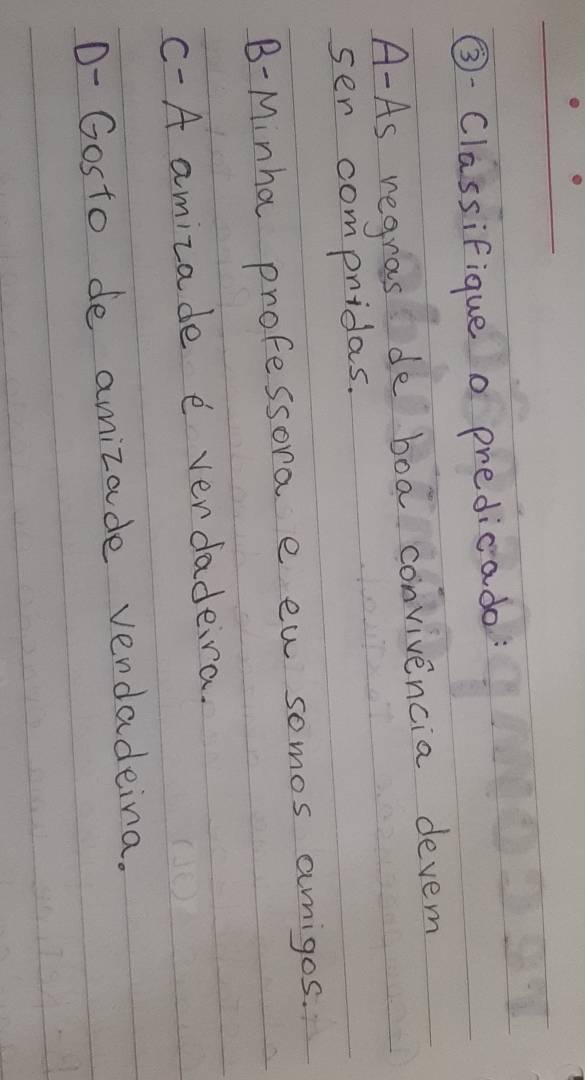 ③- Classifique o predicado:
A- As regras de boa convivência devem
ser compridas.
B- Minha professora e eu somos amigos.
C- A amizade é verdadeira.
D- Gosto de amizade verdadeira.